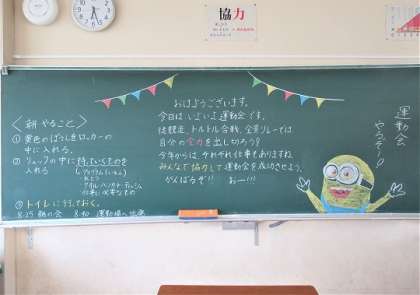 協力
おはようございます。
今日は、いよいよ運動会です。
全員リレーでは
自分の全力を出し切ろう？
今年からは、それぞれ仕事もありますね。
みんなで協力して運動会を成功させよう。
がんばるぞ!!　おー!!!
運動会
やるぞ〜!!
＜朝やること＞
① 黄色のぼうしをロッカーの
中に入れる。
② リュックの中に持っていくものを
入れる
③ トイレに行っておく。
8:25 朝の会